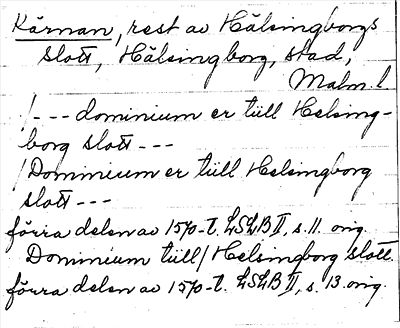 Kärnan, rest av Hälsingborgs
slott, Hälsingborg, stad,
Malm. l
/--- dominium er tiill Helsing-
borg slott ---
/Dominium er tiill Helsingborg
slott ---
förra delen av 1570-t. LSLB II, s. 11. orig.
Dominium tiill/Helsingborg slott.
förra delen av 1570-t. LSLB II, s. 13. orig.